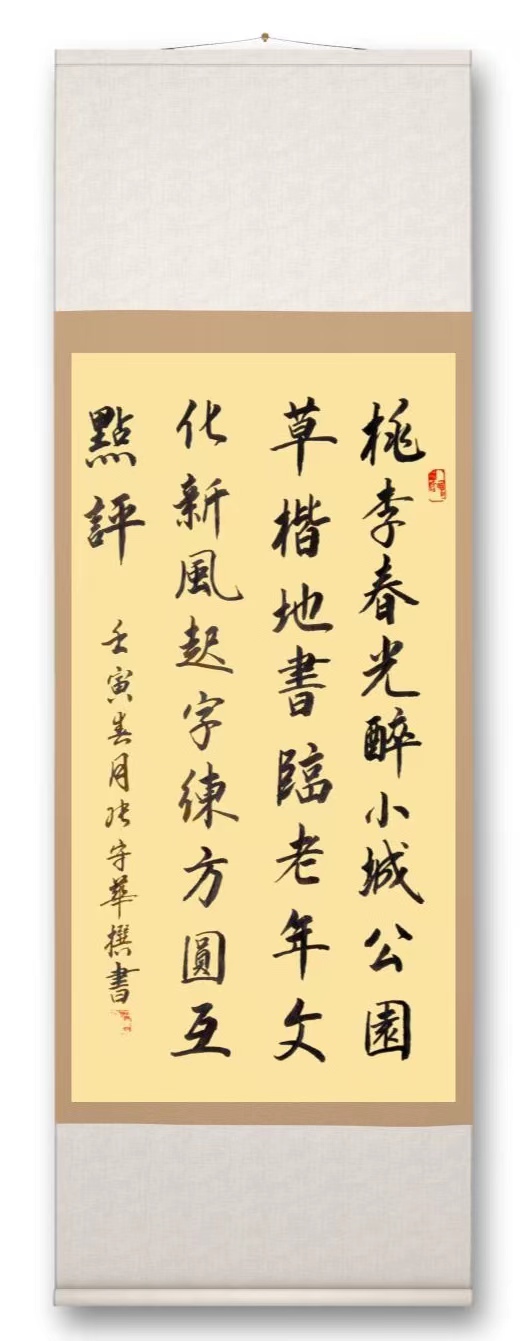 桃李春光醉小城公園
草楷地書臨老年文
化新風起字練方圓互
點評
壬寅春月張守華撰書